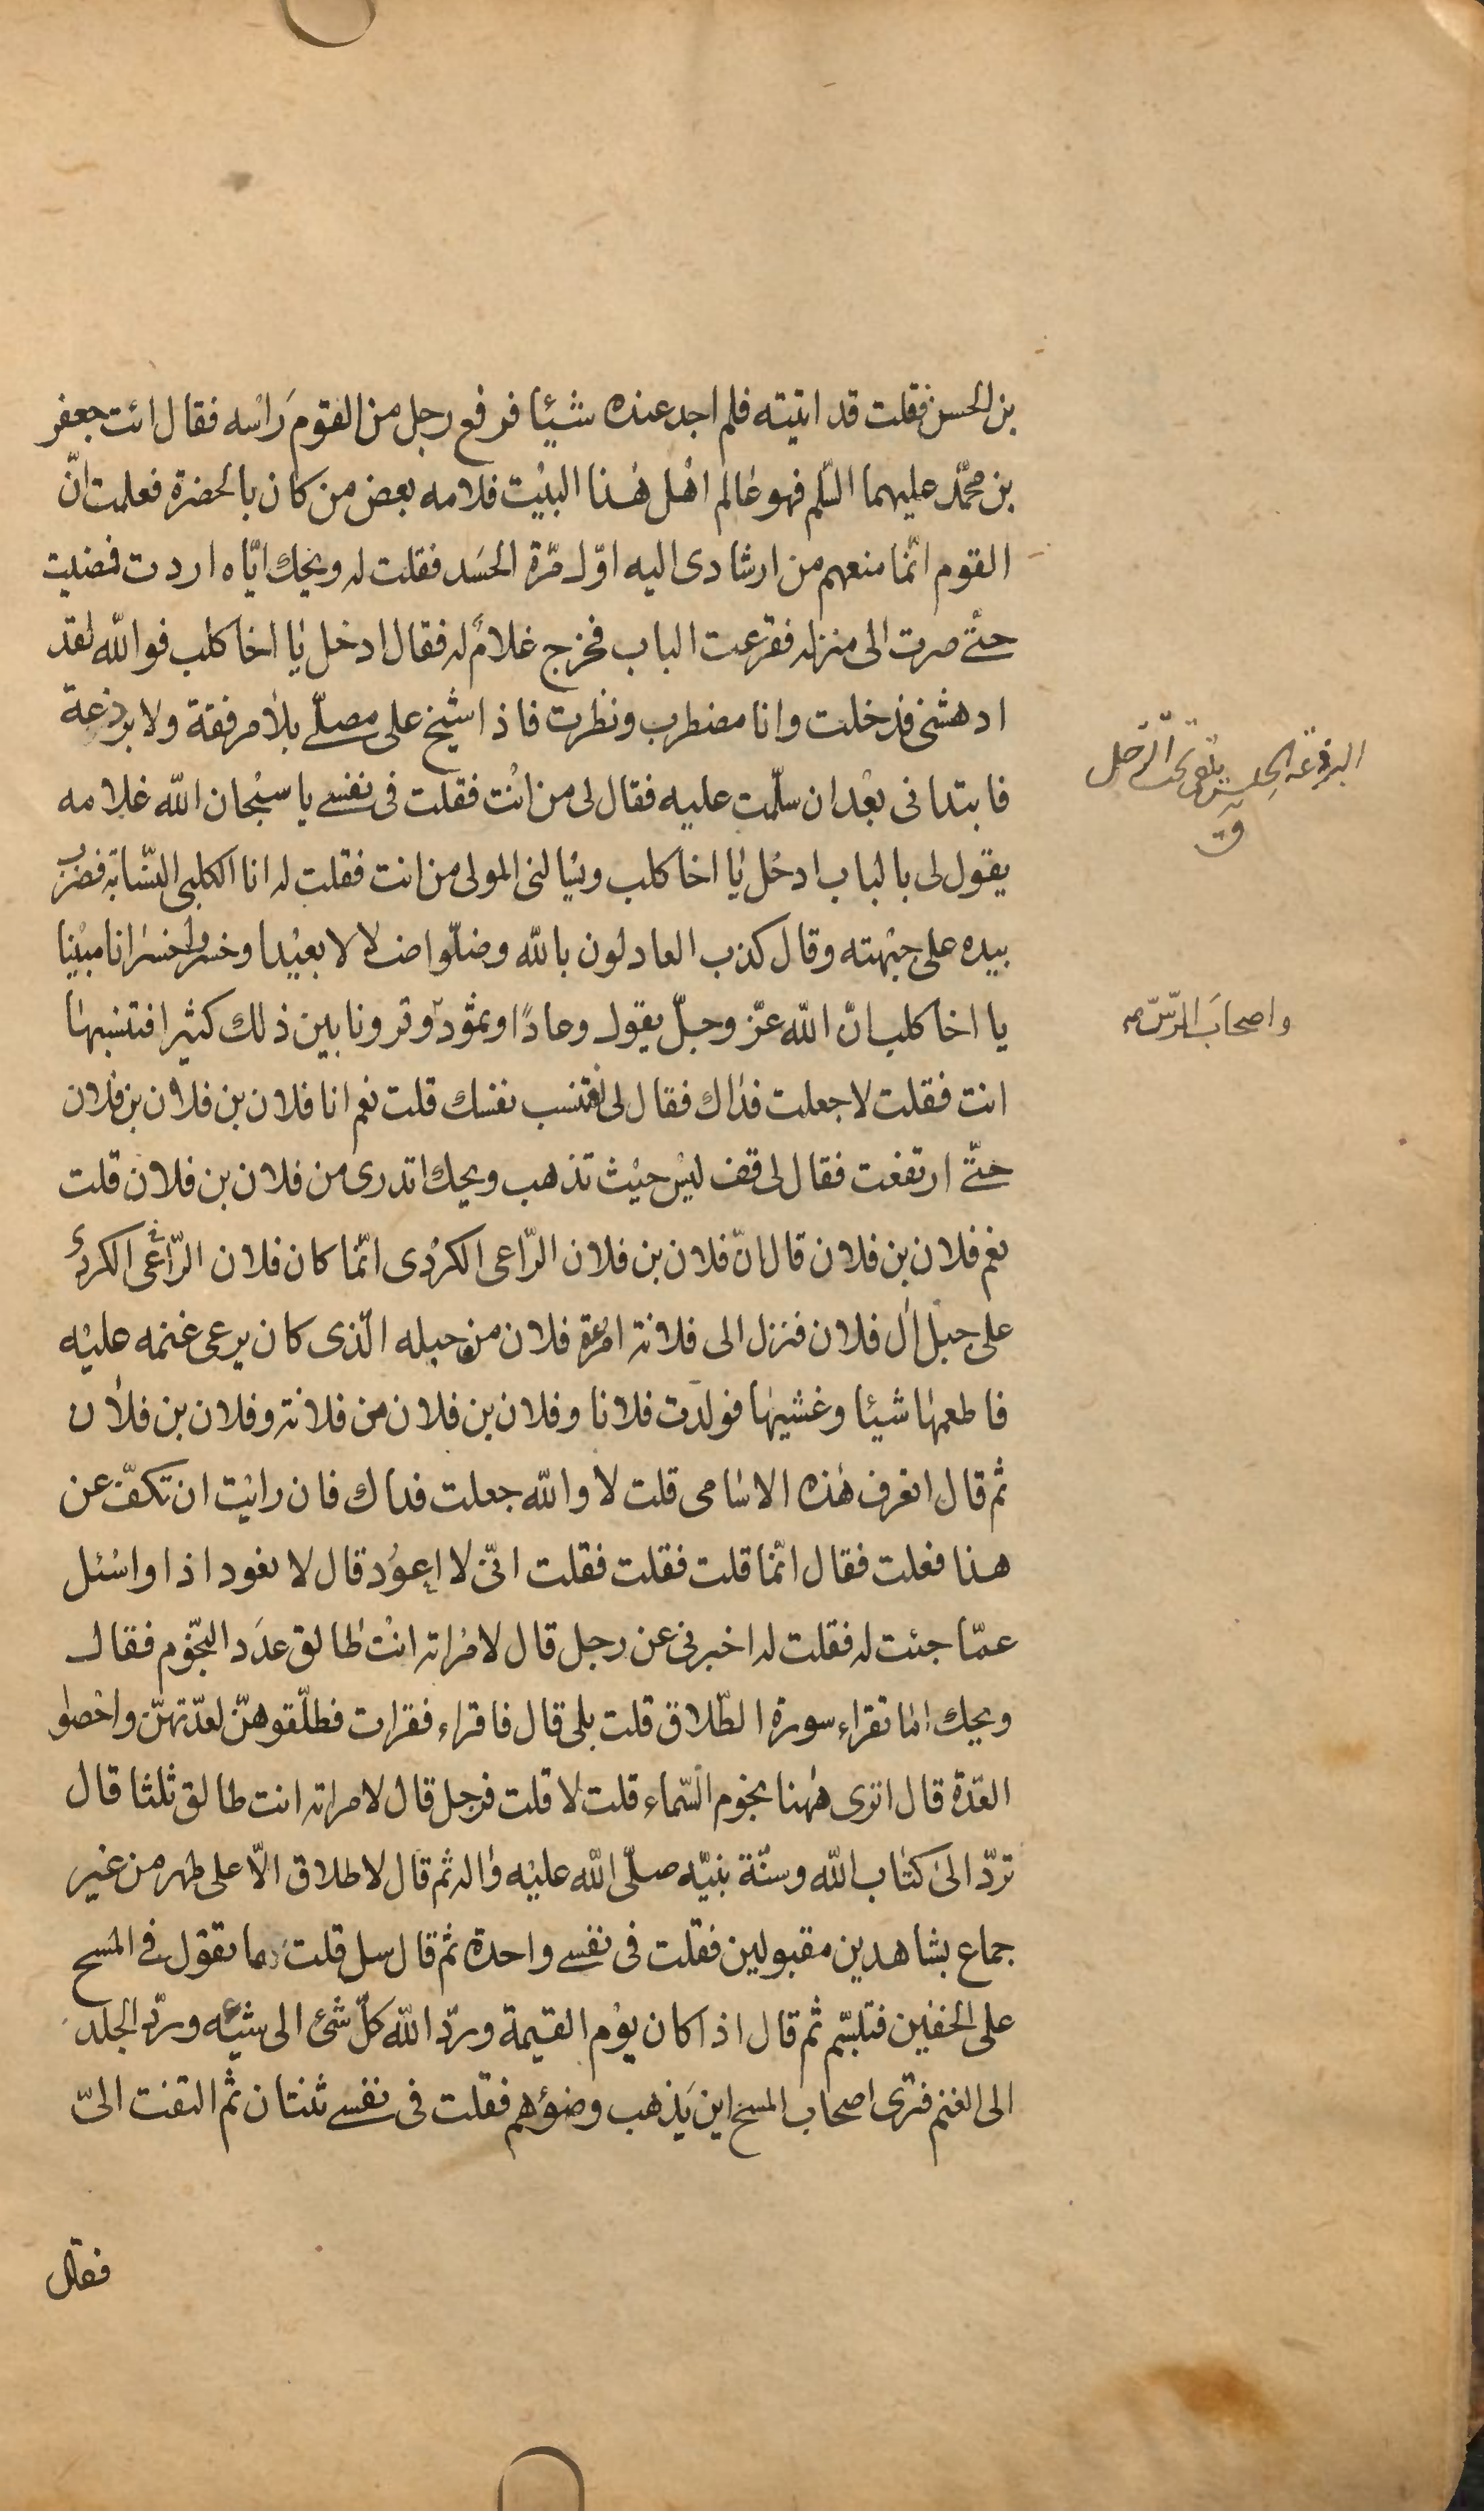 بن الحسن فقلت قد اتيته فلم اجد عنده شيئا فرفع رجل من القوم رَاسه فقال ائت جعفر
بن محمّد عليهما السّلم فهو عالم اهل هذا البيت فلامه بعض من كان بالحضرة فعلمت انّ
القوم انّما منعهم من ارشادى اليه اوّل مرّة الحسَد فقلت له ويحك ايّاه اردت فمضيت
حتّى صرت الى منزله فقرعت الباب فخرج غلامٌ له فقال ادخل يا اخا كلب فوالله لقد
ادهشنى فدخلت وانا مضطرب ونظرت فاذا شيخ على مصلّى بلا مرفقة ولا بردعة
البرذعة الحلس يلقى تحت الرّحل
ق
فابتدانى بعْد ان سلّمت عليه فقال لى من انت فقلت فى نفسى يا سبْحان الله غلامه
يقول لى بالباب ادخُل يا اخا كلب ويسالنى المولى من انت فقلت له انا الكلبى النسّابة فضرب
بيده على جبْهته وقال كذب العادلون بالله وضلّوا ضلالا بعيْدا وخسروا خسرانا مبيْنا
يا اخا كلب انّ الله عزّ وجلّ يقول وعادًا وثمود وقرونا بين ذلك كثيرا افتنسبها
واصحابَ الرّسّ صح
انت فقلت لا جعلت فداك فقال لى افتنسب نفسك قلت نعم انا فلان بن فلان بن فلان
حتّى ارتفعت فقال لى قف ليْس حيْث تذهب ويحك اتدرى من فلان بن فلان قلت
نعم فلان بن فلان قال انّ فلان بن فلان الرّاعى الكرْدى انّما كان فلان الرّاعى الكردى
على جبل ال فلان فنزل الى فلانة امرءة فلان من جبله الّذى كان يرعى غنمه عليْه
فاطعمها شيئا وغشيها فولدت فلانا وفلان بن فلان من فلانة وفلان بن فلان
ثم قال اتعرف هذه الاسامى قلت لا والله جعلت فداك فان رايْت ان تكفّ عن
هذا فعلت فقال انّما قلت فقلت فقلت انّى لا اعوُد قال لا نعود اذا واسْئل
عمّا جئت له فقلت له اخبرنى عن رجل قال لامْراته انْت طالق عدَد النّجوم فقال
ويحك اما تقراء سورة الطّلاق قلت بلى قال فاقراء فقرات فطلّقوهنّ لعدّتهنّ واحْصوا
العدّة قال اترى ههنا نجوم السّماء قلت لا قلت فرجل قال لامراته انت طالق ثلثا قال
تردّ الى كتاب الله وسنّة نبيّه صلّى الله عليْه واله ثم قال لا طلاق الّا على طهر من غير
جماع بشاهدين مقبولين فقلت فى نفسى واحدة ثم قال سل قلت ما تقول فى المسح
على الخفّين فتبسّم ثم قال اذا كان يوْم القيمة وردّ الله كلّ شئ الى شيئه وردّ الجلد
الى الغنم فترى اصحاب المسح اين يَذهب وضوؤهم فقلت فى نفسى ثنتان ثم التفت الىّ
فقال